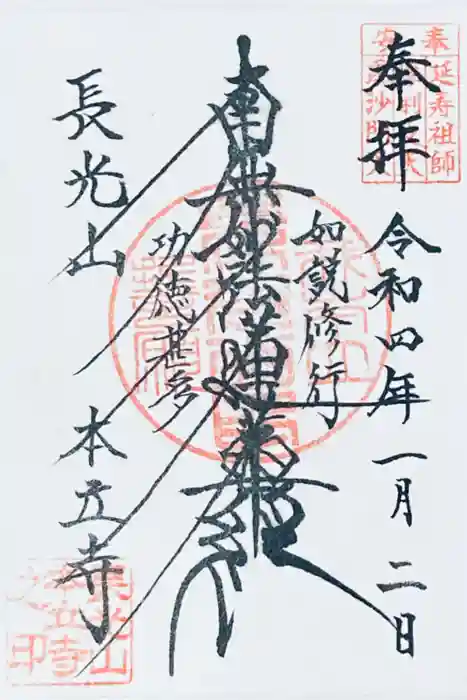 奉拝
令和四年一月二日
如説修行
南無妙法蓮華経
功徳甚多
長光山
本立寺
奉
延寿祖師
長光山
本立寺
之印